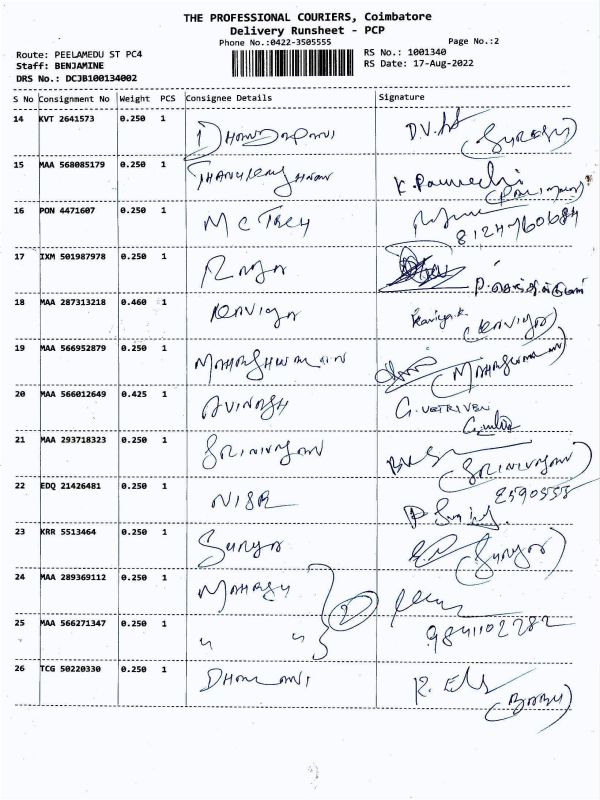 THE PROFESSIONAL COURIERS, Coimbatore
Delivery Runsheet - PCP
Phone No.:0422-3505555
Page No.:2
Route: PEELAMEDU ST PC4
RS No.: 1001340
Staff: BENJAMINE
RS Date: 17-Aug-2022
DRS No.: DCJB100134002
S No Consignment No Weight PCS Consignee Details Signature
14 KVT 2641573 0.250 1
(SURESH)
15 MAA 568085179 0.250 1
16 PON 4471607 0.250 1
17 IXM 501987978 0.250 1 Raja
18 MAA 287313218 0.460 1 Kaviya Kaviya.K.
(Kaviya)
19 MAA 566952879 0.250 1 Maheshwaran
(Maheshwaran)
20 MAA 566012649 0.425 1 AVINASH G. VETRIVEL
21 MAA 293718323 0.250 1 Srinivasan
(Srinivasan)
22 EDQ 21426481 0.250 1 NISR 2590555
23 KRR 5513464 0.250 1 Surya (Surya)
24 MAA 289369112 0.250 1 Mahesh
2
25 MAA 566271347 0.250 1 " " 9841102282
26 TCG 50220330 0.250 1
(BABU)